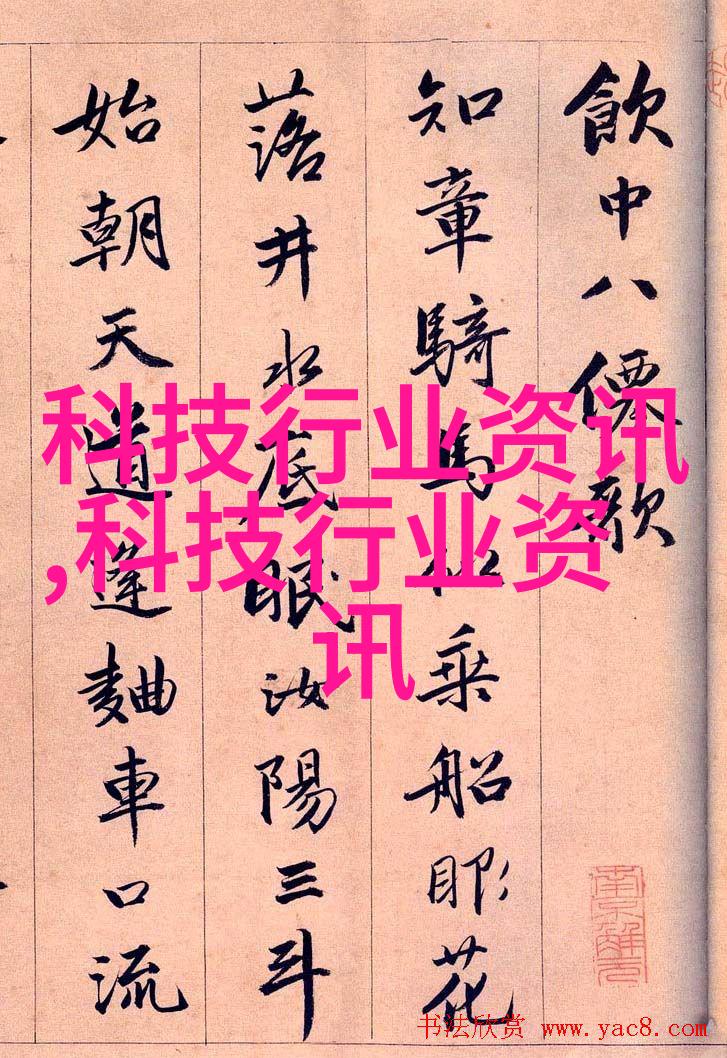 飲中八僊歌
知章騎馬似乘船眼花
落井水底眠汝陽三斗
始朝天道逢麯車口流
科技行业资讯
,科技行业资
讯
南京解元
书法欣赏 www.yac8.com